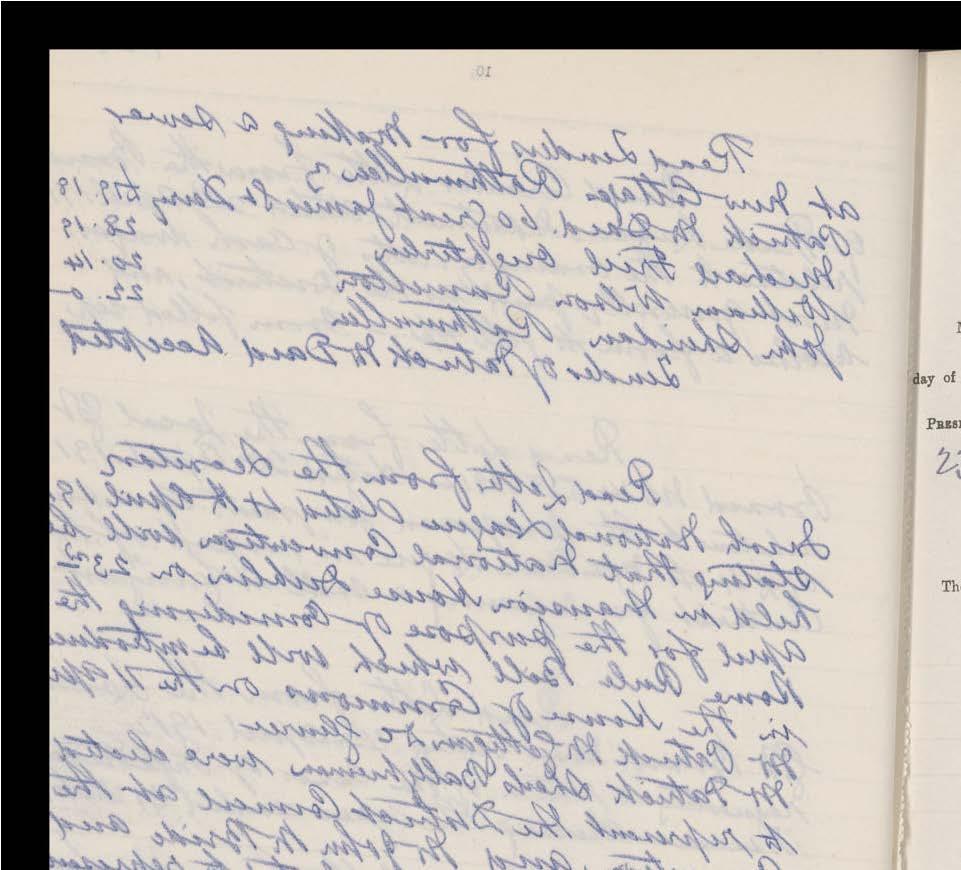 10
Read Tenders for Making a Sewer
at New Cottages Rathmullen
Patrick McDaid. Great James St Derry £19.19
Michael Friel 28.19
William Wilson Ramelton 20.14
John Sheridan Rathmullen 22.0
Tender of Patrick McDaid Accepted
Read Letter from the Secretary
Irish National League dated 4th April 19
stating that National Convention will be
held in Mansion House Dublin on 23rd
April for the purpose of Considering the
Home Rule Bill which will be introduce
in the House of Commons on the 11 Apri
Mr Patrick
Mr Patrick Sheils were elected
to represent the District Council at the
and Mr John McBride and
to represen
day of
PRES
Th